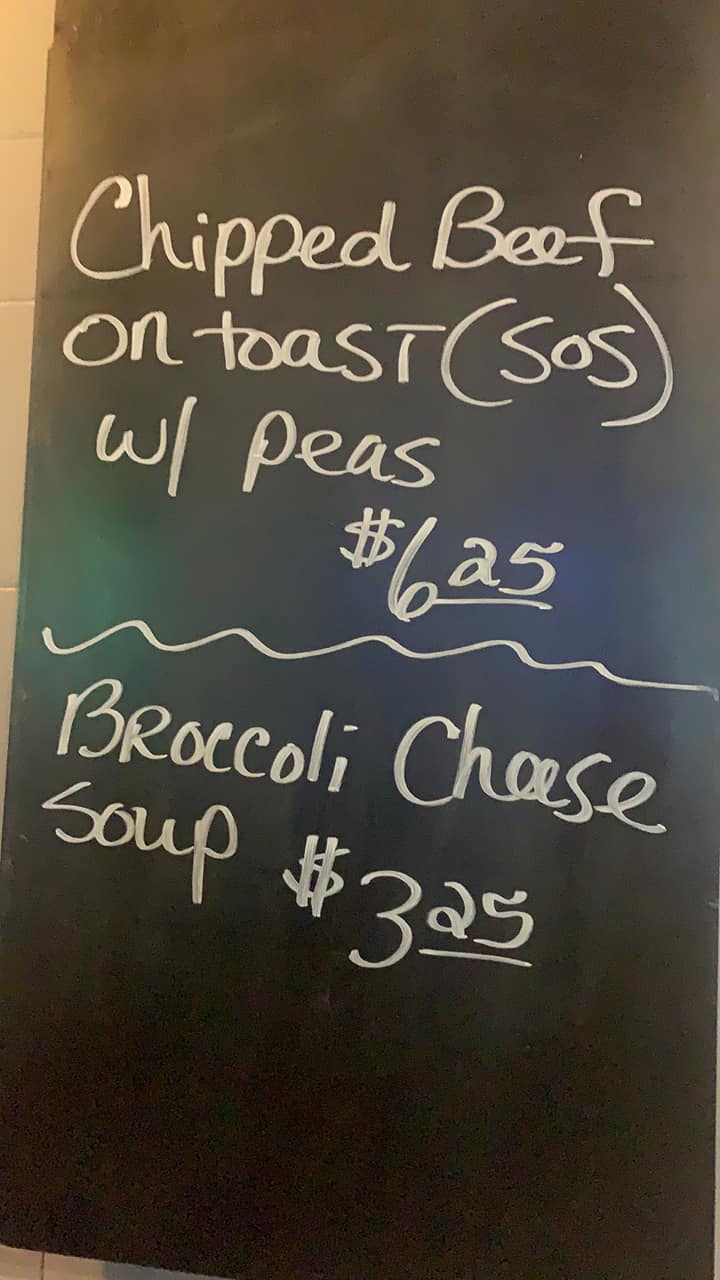 Chipped Beef
on toast (SOS)
w/ peas
$6.25
Broccoli Cheese
Soup $3.25